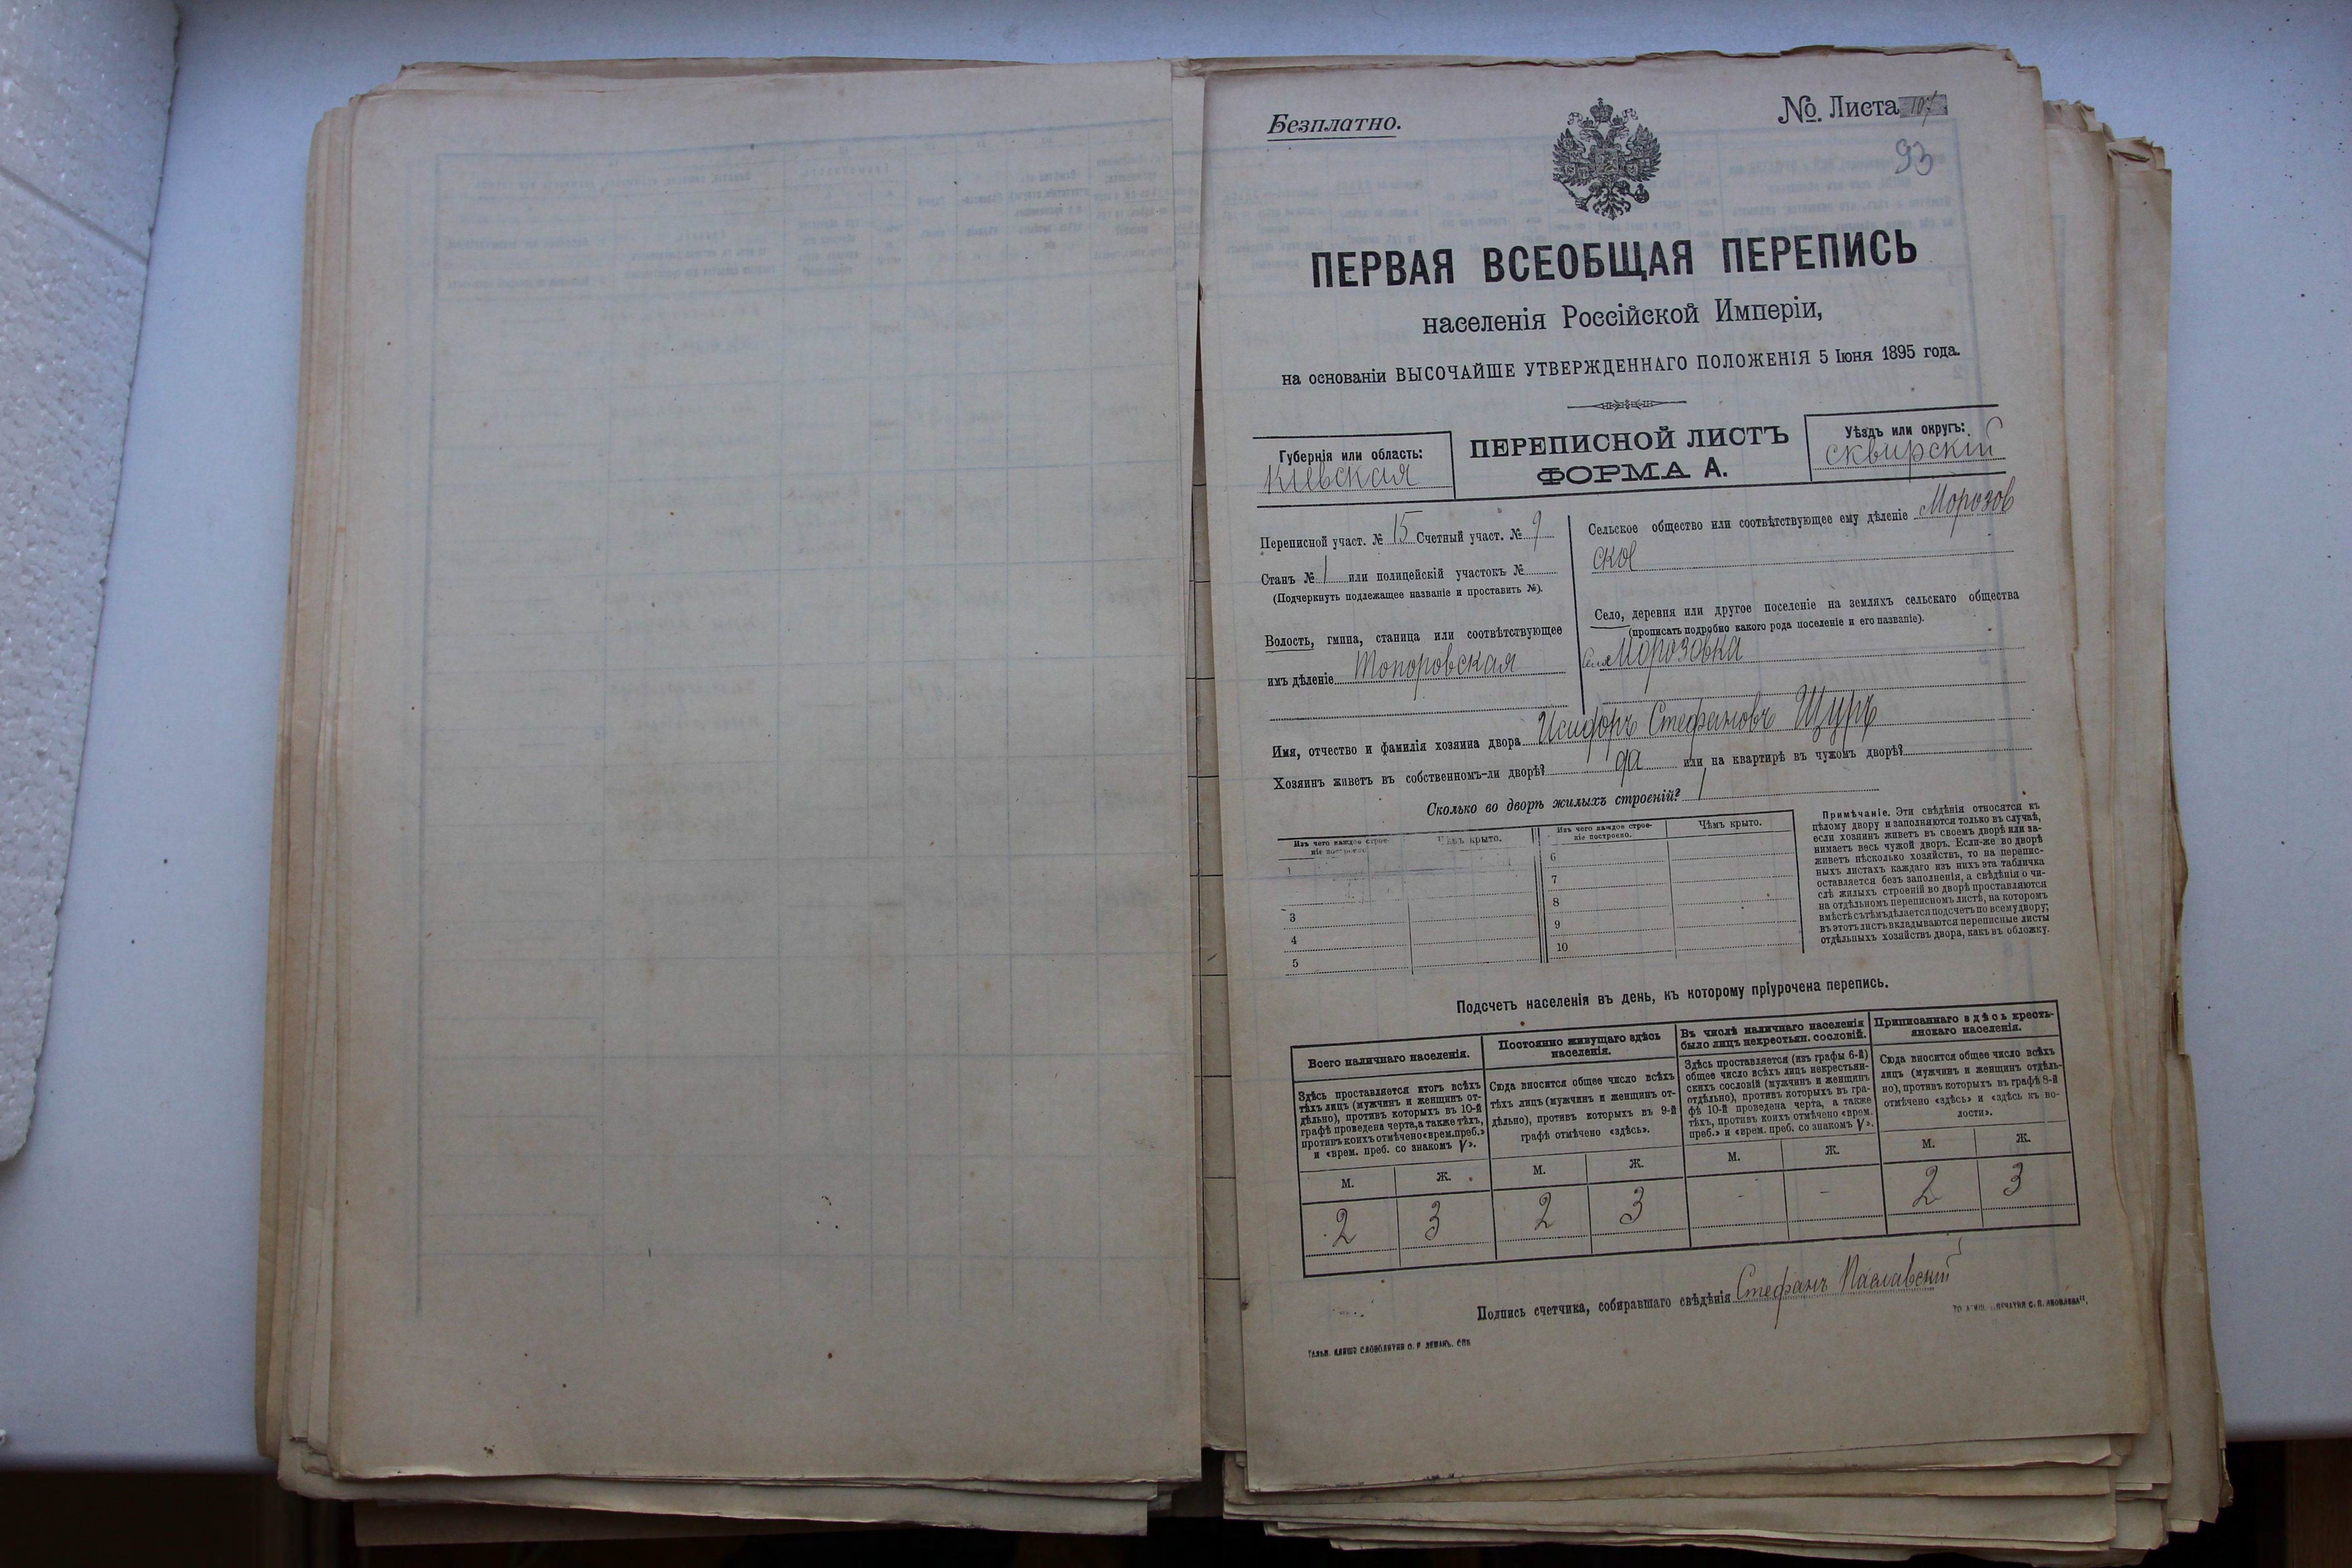 Безплатно.
№ Листа 107
93
ПЕРВАЯ ВСЕОБЩАЯ ПЕРЕПИСЬ
населенія Россійской Имперіи,
на основаніи ВЫСОЧАЙШЕ УТВЕРЖДЕННАГО ПОЛОЖЕНІЯ 5 Іюня 1895 года.
Губернія или область:
Кіевская
ПЕРЕПИСНОЙ ЛИСТЪ
ФОРМА А.
Уѣздъ или округъ:
сквирскій
Переписной участ. № 15 Счетный участ. № 9
Станъ № 1 или полицейскій участокъ №
(Подчеркнуть подлежащее названіе и проставить №).
Волость, гмина, станица или соотвѣтствующее
имъ дѣленіе Топоровская
Сельское общество или соотвѣтствующее ему дѣленіе Морозов
ское
Село, деревня или другое поселеніе на земляхъ сельскаго общества
(прописать подробно какого рода поселеніе и его названіе).
Морозовка
Имя, отчество и фамилія хозяина двора Исидоръ Стефановъ Щуръ
Хозяинъ живетъ въ собственномъ-ли дворѣ? да или на квартирѣ въ чужомъ дворѣ?
Сколько во дворѣ жилыхъ строеній? 1
Изъ чего каждое строе-
ніе построено.
Чѣмъ крыто.
1
3
4
5
Изъ чего каждое строе-
ніе построено.
Чѣмъ крыто.
6
7
8
9
10
Примѣчаніе. Эти свѣдѣнія относятся къ
цѣлому двору и заполняются только въ случаѣ,
если хозяинъ живетъ въ своемъ дворѣ или за-
нимаетъ весь чужой дворъ. Если-же во дворѣ
живетъ нѣсколько хозяйствъ, то на перепис-
ныхъ листахъ каждаго изъ нихъ эта табличка
оставляется безъ заполненія, а свѣдѣнія о чи-
слѣ жилыхъ строеній во дворѣ проставляются
на отдѣльномъ переписномъ листѣ, на которомъ
вмѣстѣ съ тѣмъ дѣлается подсчетъ по всему двору;
въ этотъ листъ вкладываются переписные листы
отдѣльныхъ хозяйствъ двора, какъ въ обложку.
Подсчетъ населенія въ день, къ которому пріурочена перепись.
Всего наличнаго населенія.
Здѣсь проставляется итогъ всѣхъ
тѣхъ лицъ (мужчинъ и женщинъ от-
дѣльно), противъ которыхъ въ 10-й
графѣ проведена черта, а также тѣхъ,
противъ коихъ отмѣчено «врем. преб.»
и «врем. преб. со знакомъ V».
М. Ж.
2 3
Постоянно живущаго здѣсь
населенія.
Сюда вносится общее число всѣхъ
тѣхъ лицъ (мужчинъ и женщинъ от-
дѣльно), противъ которыхъ въ 9-й
графѣ отмѣчено «здѣсь».
М. Ж.
2 3
Въ числѣ наличнаго населенія
было лицъ некрестьян. сословій.
Здѣсь проставляется (изъ графы 6-й)
общее число всѣхъ лицъ некрестьян-
скихъ сословій (мужчинъ и женщинъ
отдѣльно), противъ которыхъ въ гра-
фѣ 10-й проведена черта, а также
тѣхъ, противъ коихъ отмѣчено «врем.
преб.» и «врем. преб. со знакомъ V».
М. Ж.
- -
Приписаннаго здѣсь кресть-
янскаго населенія.
Сюда вносится общее число всѣхъ
лицъ (мужчинъ и женщинъ отдѣль-
но), противъ которыхъ въ графѣ 8-й
отмѣчено «здѣсь» и «здѣсь въ во-
лости».
М. Ж.
2 3
Подпись счетчика, собиравшаго свѣдѣнія Стефанъ Паславскій